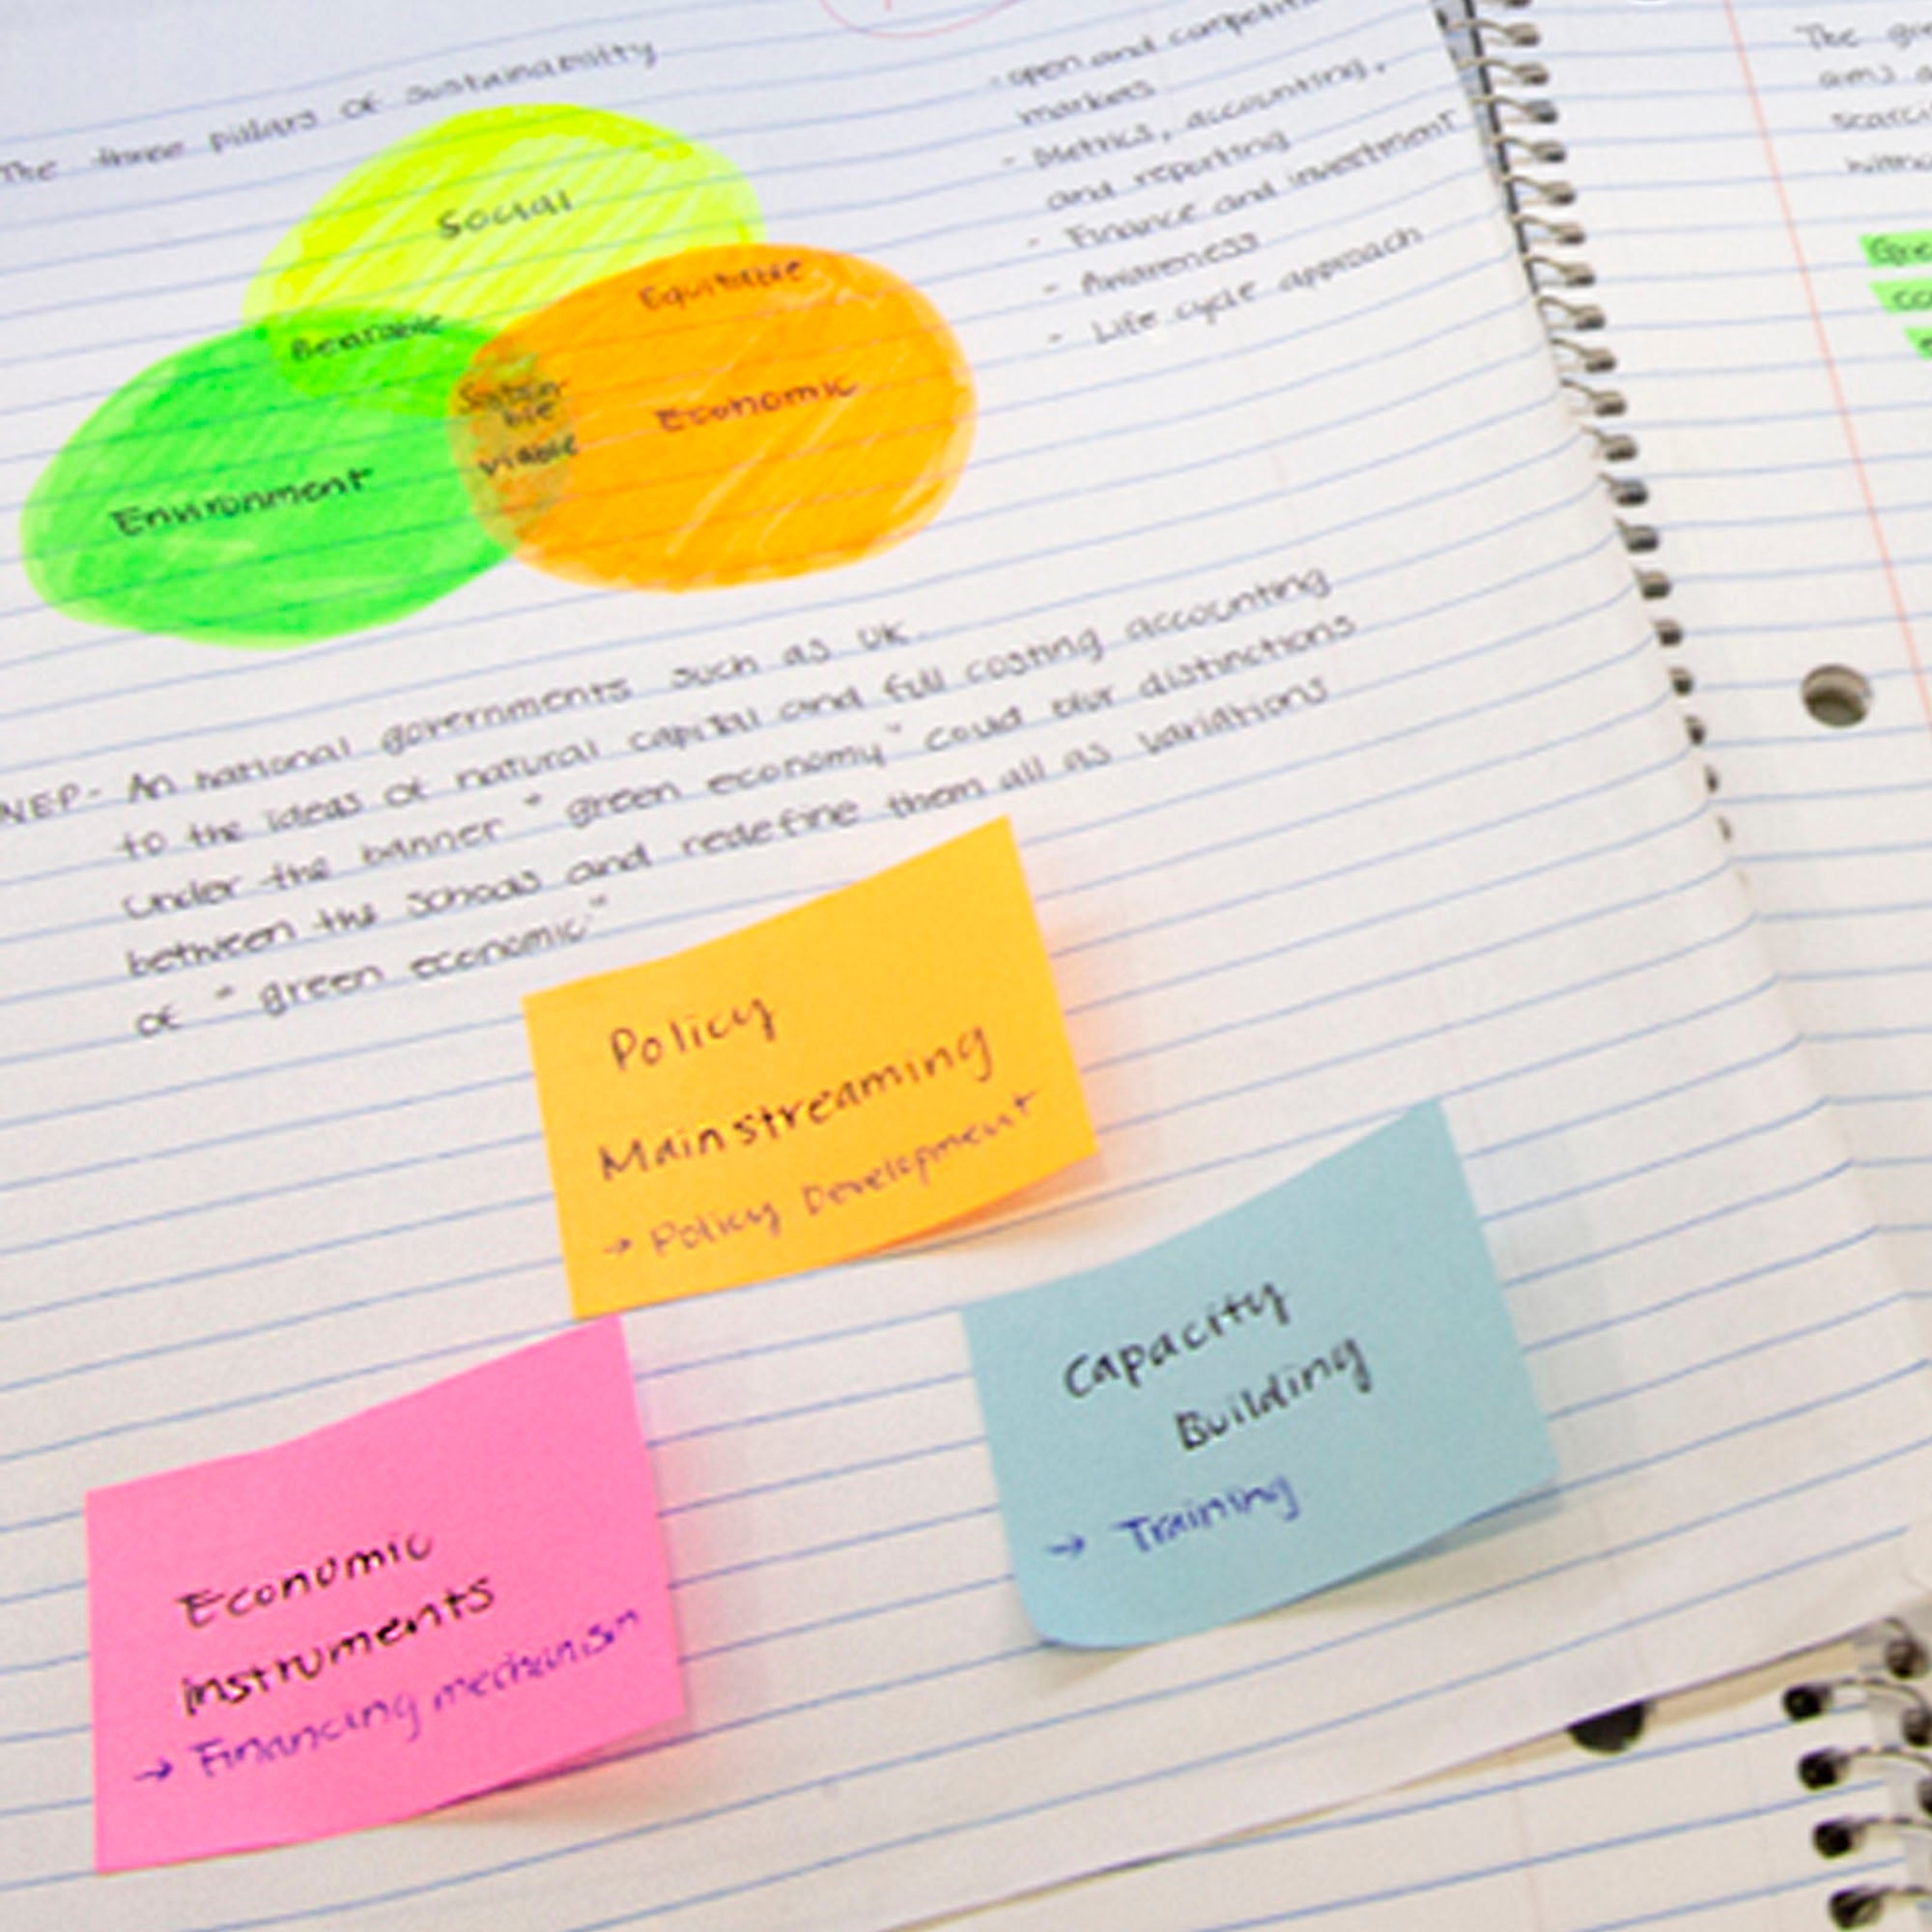 The three pillars of sustainability
Social
Equitable
Bearable
Economic
viable
Environment
- open and
markets
- Metrics, accounting,
and reporting
- Finance and investment
- Awareness
- Life cycle approach
An national governments such as UK.
to the ideas of natural capital and full costing accounting
Under the banner "green economy" could blur distinctions
between the schools and redefine them all as variations
of "green economic"
Policy
Mainstreaming
→ Policy Development
Capacity
Building
→ Training
Economic
Instruments
→ Financing mechanism
The